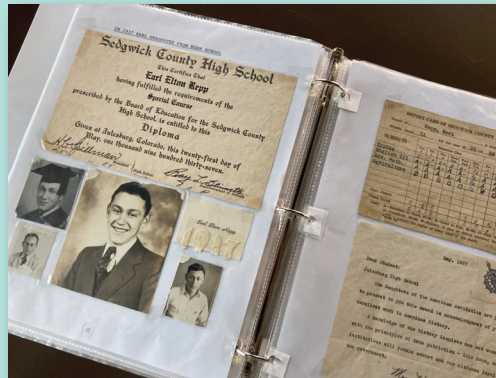 IN 1937 EARL GRADUATED FROM HIGH SCHOOL
Sedgwick County High School
This Certifies That
Earl Elton Repp
having fulfilled the requirements of the
Special Course
prescribed by the Board of Education for the Sedgwick County
High School is entitled to this
Diploma
Given at Julesburg, Colorado, this twenty-first day of
May, one thousand nine hundred thirty-seven.
Earl Elton Repp
1937
REPORT CARD OF SEDGWICK COUNTY
Repp, Earl
SUBJECTS
Typing
Agriculture
May, 1937
Dear Student:
Julesburg High School
The Daughters of the American Revolution are
to present to you this award in acknowledgment of
excellent work in American History.
A knowledge of our history inspires one
with the principles of true patriotism - this
institutions will remain secure and our citizens loyal
our government.